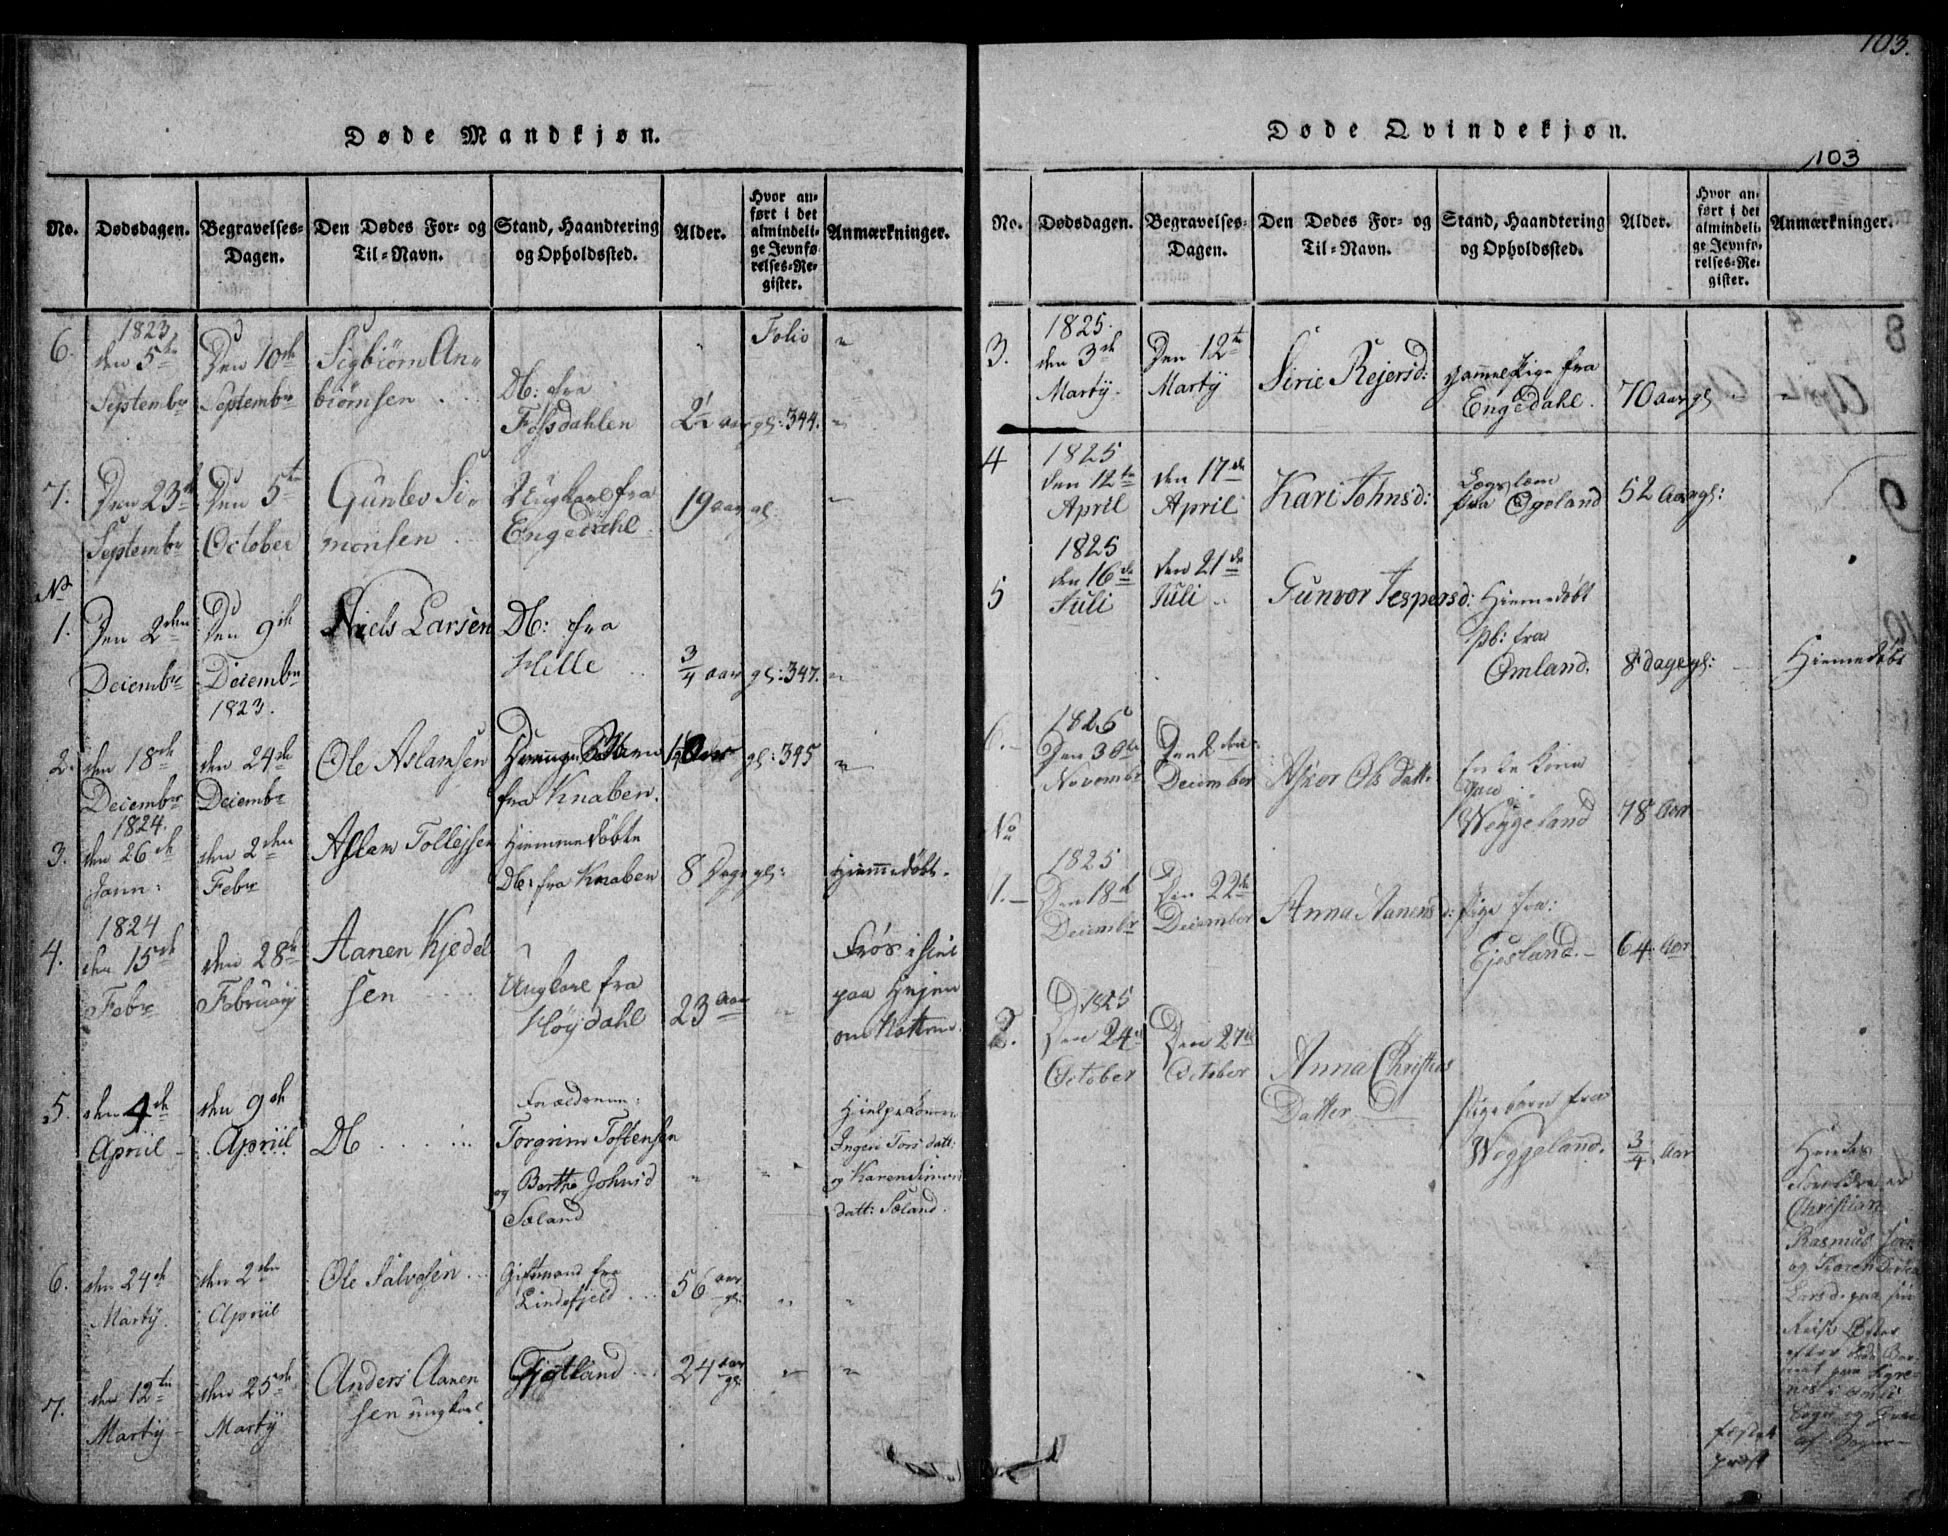 103.
Døde Mandkjøn.
No.
Dødsdagen.
Begravelses-
Dagen.
Den Dødes For- og
Til-Navn.
Stand, Haandtering
og Opholdssted.
Alder.
Hvor an-
ført i det
almindeli-
ge Jevnfø-
relses-Re-
gister.
Anmærkninger.
6.
1823
den 5te
Septembr
Den 10de
Septembr
Sigbiørn An-
biørnsen
Db: fra
Fossdahlen
2½ aar gl: 344.
Folio
7.
Den 23de
Septembr
Den 5te
October
Gunlev Si-
monsen
Ungkarl fra
Engedahl
19 aar gl.
No
1.
Den 2den
Decembr
Den 9de
Decembr
1823.
Niels Larsen
Db: fra
Hille
3/4 aar gl: 347.
2.
den 18de
Decembr
den 24de
Decembr
Ole Aslacsen
fra Knaben.
gl: 345
3.
1824.
den 26de
Jann:
den 2den
Febr
Aslam Tollefsen
Hiemmedøbte
Db: fra Knaben
8 Dage gl:
Hiemmedøbt.
4.
1824
den 15de
Febr
den 28de
Februarij
Aanen Kjedel
sen
Ungkarl fra
Høydahl
23 Aar
Frøs ihiel
paa Hejen
om Natten.
5.
den 4de
Apriil
den 9de
Apriil
Db
Foreldrene:
Torgrim Tostensen
og Berthe Johnsd
Soland
Hielpekoner
Inger Torsdatt:
og Karen Simons
datt: Soland.
6.
den 24de
Martij.
den 2den
Apriil
Ole Salvesen
Giftmand fra
Lindefjeld
56 aar
gl:
7.
den 12te
Martij
den 25de
Martij
Anders Aanen
sen ungkarl
Fjotland
24 aar
gl:
Døde Qvindekjøn.
103
No.
Dødsdagen.
Begravelses-
Dagen.
Den Dødes For- og
Til-Navn.
Stand, Haandtering
og Opholdssted.
Alder.
Hvor an-
ført i det
almindeli-
ge Jevnfø-
relses-Re-
gister.
Anmærkninger.
3.
1825.
den 3de
Martij.
Den 12te
Martij
Sirie Rejersd:
gammel Pige fra
Engedahl.
70 aar gl.
4
1825
den 12te
April
den 17de
April
Kari Johnsd:
Lægslem
fra Egeland
52 Aar gl:
5
1825
den 16de
Juli
den 21de
Juli
Gunvor Jespersd:
Hiemedøbt
pb: fra
Omland.
8 dage gl:
Hiemedøbt
6.
1825
Den 30te
Novembr
Den 2den
December
Asvor Ols datt
Enke Kone
Weggeland
78 Aar
No
1.
1825
Den 18de
Decembr
Den 22de
December
Anna Aanensd:
Pige fra:
Ejesland.
64 Aar
2.
1825
Den 24de
October
Den 27de
October
Anna Christies
Datter
Pigebarn fra
Weggeland.
3/4 Aar
Hendes
Forældre er
Christian
Rasmus Søn
og Karen Dortea
Larsd. paa sin
Reise